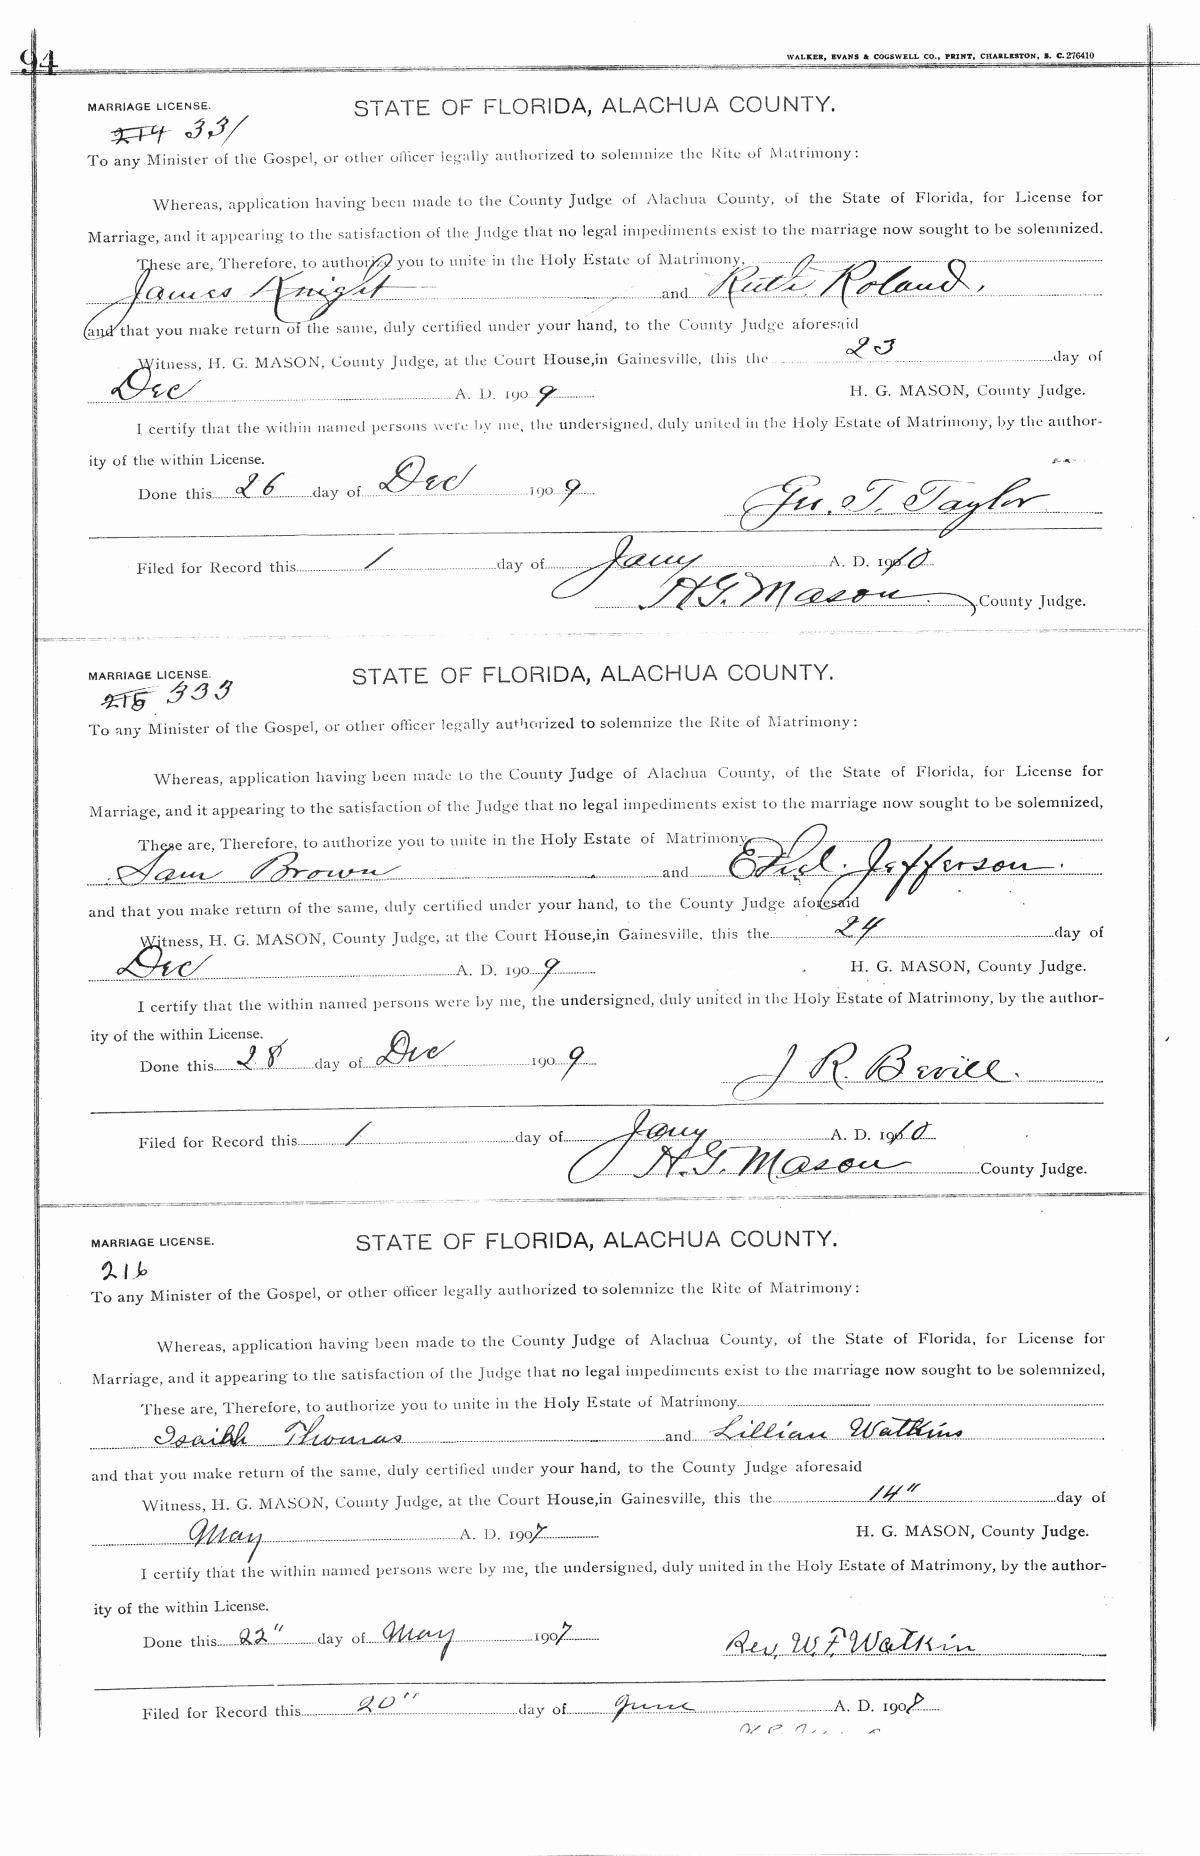 94
WALKER, EVANS & COGSWELL CO., PRINT, CHARLESTON, S. C. 276410
MARRIAGE LICENSE.
STATE OF FLORIDA, ALACHUA COUNTY.
214 331
To any Minister of the Gospel, or other officer legally authorized to solemnize the Rite of Matrimony:
Whereas, application having been made to the County Judge of Alachua County, of the State of Florida, for License for
Marriage, and it appearing to the satisfaction of the Judge that no legal impediments exist to the marriage now sought to be solemnized.
These are, Therefore, to authorize you to unite in the Holy Estate of Matrimony,
James Knight and Ruth Roland,
and that you make return of the same, duly certified under your hand, to the County Judge aforesaid
Witness, H. G. MASON, County Judge, at the Court House, in Gainesville, this the 23 day of
Dec A. D. 1909 H. G. MASON, County Judge.
I certify that the within named persons were by me, the undersigned, duly united in the Holy Estate of Matrimony, by the author-
ity of the within License.
Done this 26 day of Dec 1909
T. Taylor
Filed for Record this 1 day of Jany A. D. 1910
H. G. Mason County Judge.
MARRIAGE LICENSE.
STATE OF FLORIDA, ALACHUA COUNTY.
215 333
To any Minister of the Gospel, or other officer legally authorized to solemnize the Rite of Matrimony:
Whereas, application having been made to the County Judge of Alachua County, of the State of Florida, for License for
Marriage, and it appearing to the satisfaction of the Judge that no legal impediments exist to the marriage now sought to be solemnized,
These are, Therefore, to authorize you to unite in the Holy Estate of Matrimony
Sam Brown and Ethel Jefferson.
and that you make return of the same, duly certified under your hand, to the County Judge aforesaid
Witness, H. G. MASON, County Judge, at the Court House, in Gainesville, this the 24 day of
Dec A. D. 1909 H. G. MASON, County Judge.
I certify that the within named persons were by me, the undersigned, duly united in the Holy Estate of Matrimony, by the author-
ity of the within License.
Done this 28 day of Dec 1909
J R. Bevill.
Filed for Record this 1 day of Jany A. D. 1910
H. G. Mason County Judge.
MARRIAGE LICENSE.
STATE OF FLORIDA, ALACHUA COUNTY.
216
To any Minister of the Gospel, or other officer legally authorized to solemnize the Rite of Matrimony:
Whereas, application having been made to the County Judge of Alachua County, of the State of Florida, for License for
Marriage, and it appearing to the satisfaction of the Judge that no legal impediments exist to the marriage now sought to be solemnized,
These are, Therefore, to authorize you to unite in the Holy Estate of Matrimony
Isaiah Thomas and Lillian Watkins
and that you make return of the same, duly certified under your hand, to the County Judge aforesaid
Witness, H. G. MASON, County Judge, at the Court House, in Gainesville, this the 14" day of
May A. D. 1907 H. G. MASON, County Judge.
I certify that the within named persons were by me, the undersigned, duly united in the Holy Estate of Matrimony, by the author-
ity of the within License.
Done this 22" day of May 1907
Rev. W. F. Watkin
Filed for Record this 20" day of June A. D. 1908